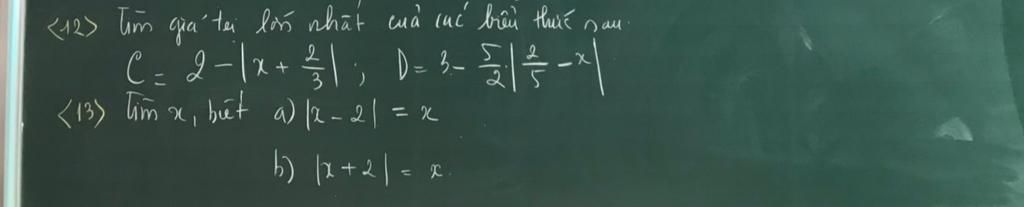 <12> Tìm giá trị lớn nhất của các biểu thức sau.
C = 2 - |x + 2/3| ; D = 3 - 5/2 |2/5 - x|
<13> Tìm x, biết a) |x - 2| = x
b) |x + 2| = x.